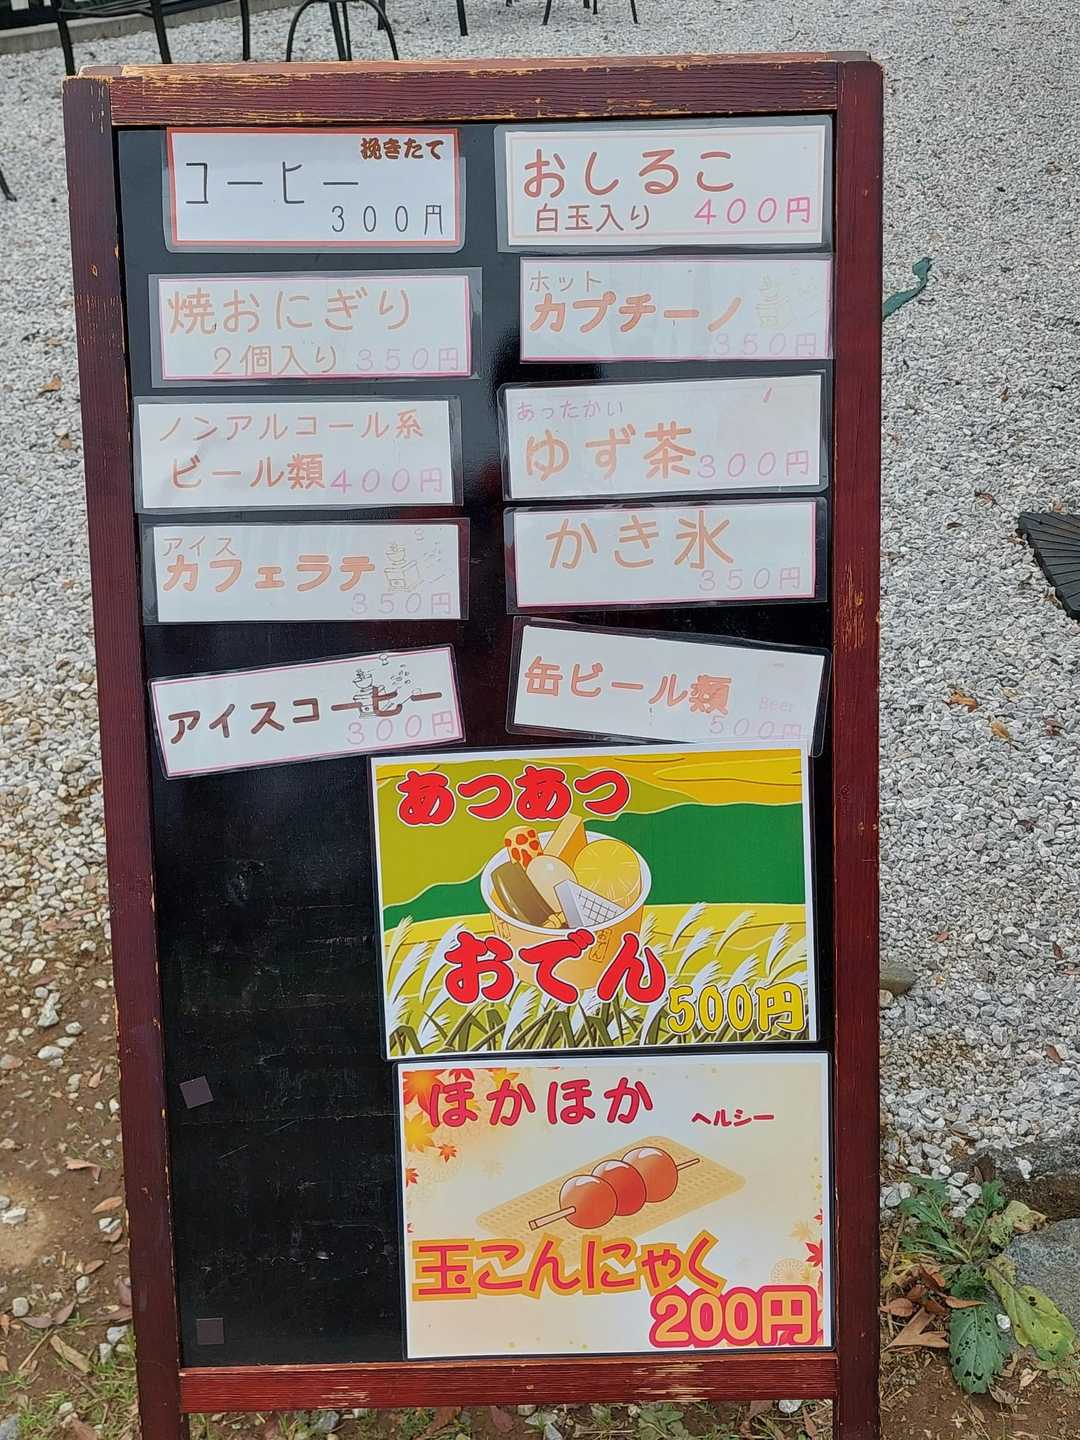 挽きたて
コーヒー
300円
おしるこ
白玉入り 400円
焼おにぎり
2個入り 350円
ホット
カプチーノ
350円
ノンアルコール系
ビール類 400円
あったかい
ゆず茶 300円
アイス
カフェラテ
350円
かき氷
350円
アイスコーヒー
300円
缶ビール類
Beer
500円
あつあつ
おでん
500円
ほかほか
ヘルシー
玉こんにゃく
200円